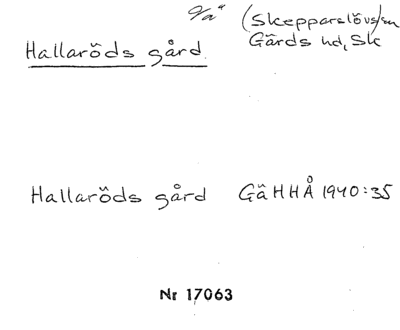 (Skepparslövs sn
Hallaröds gård. Gärds hd, Sk
Hallaröds gård GäHHÅ 1940:35
Nr 17063